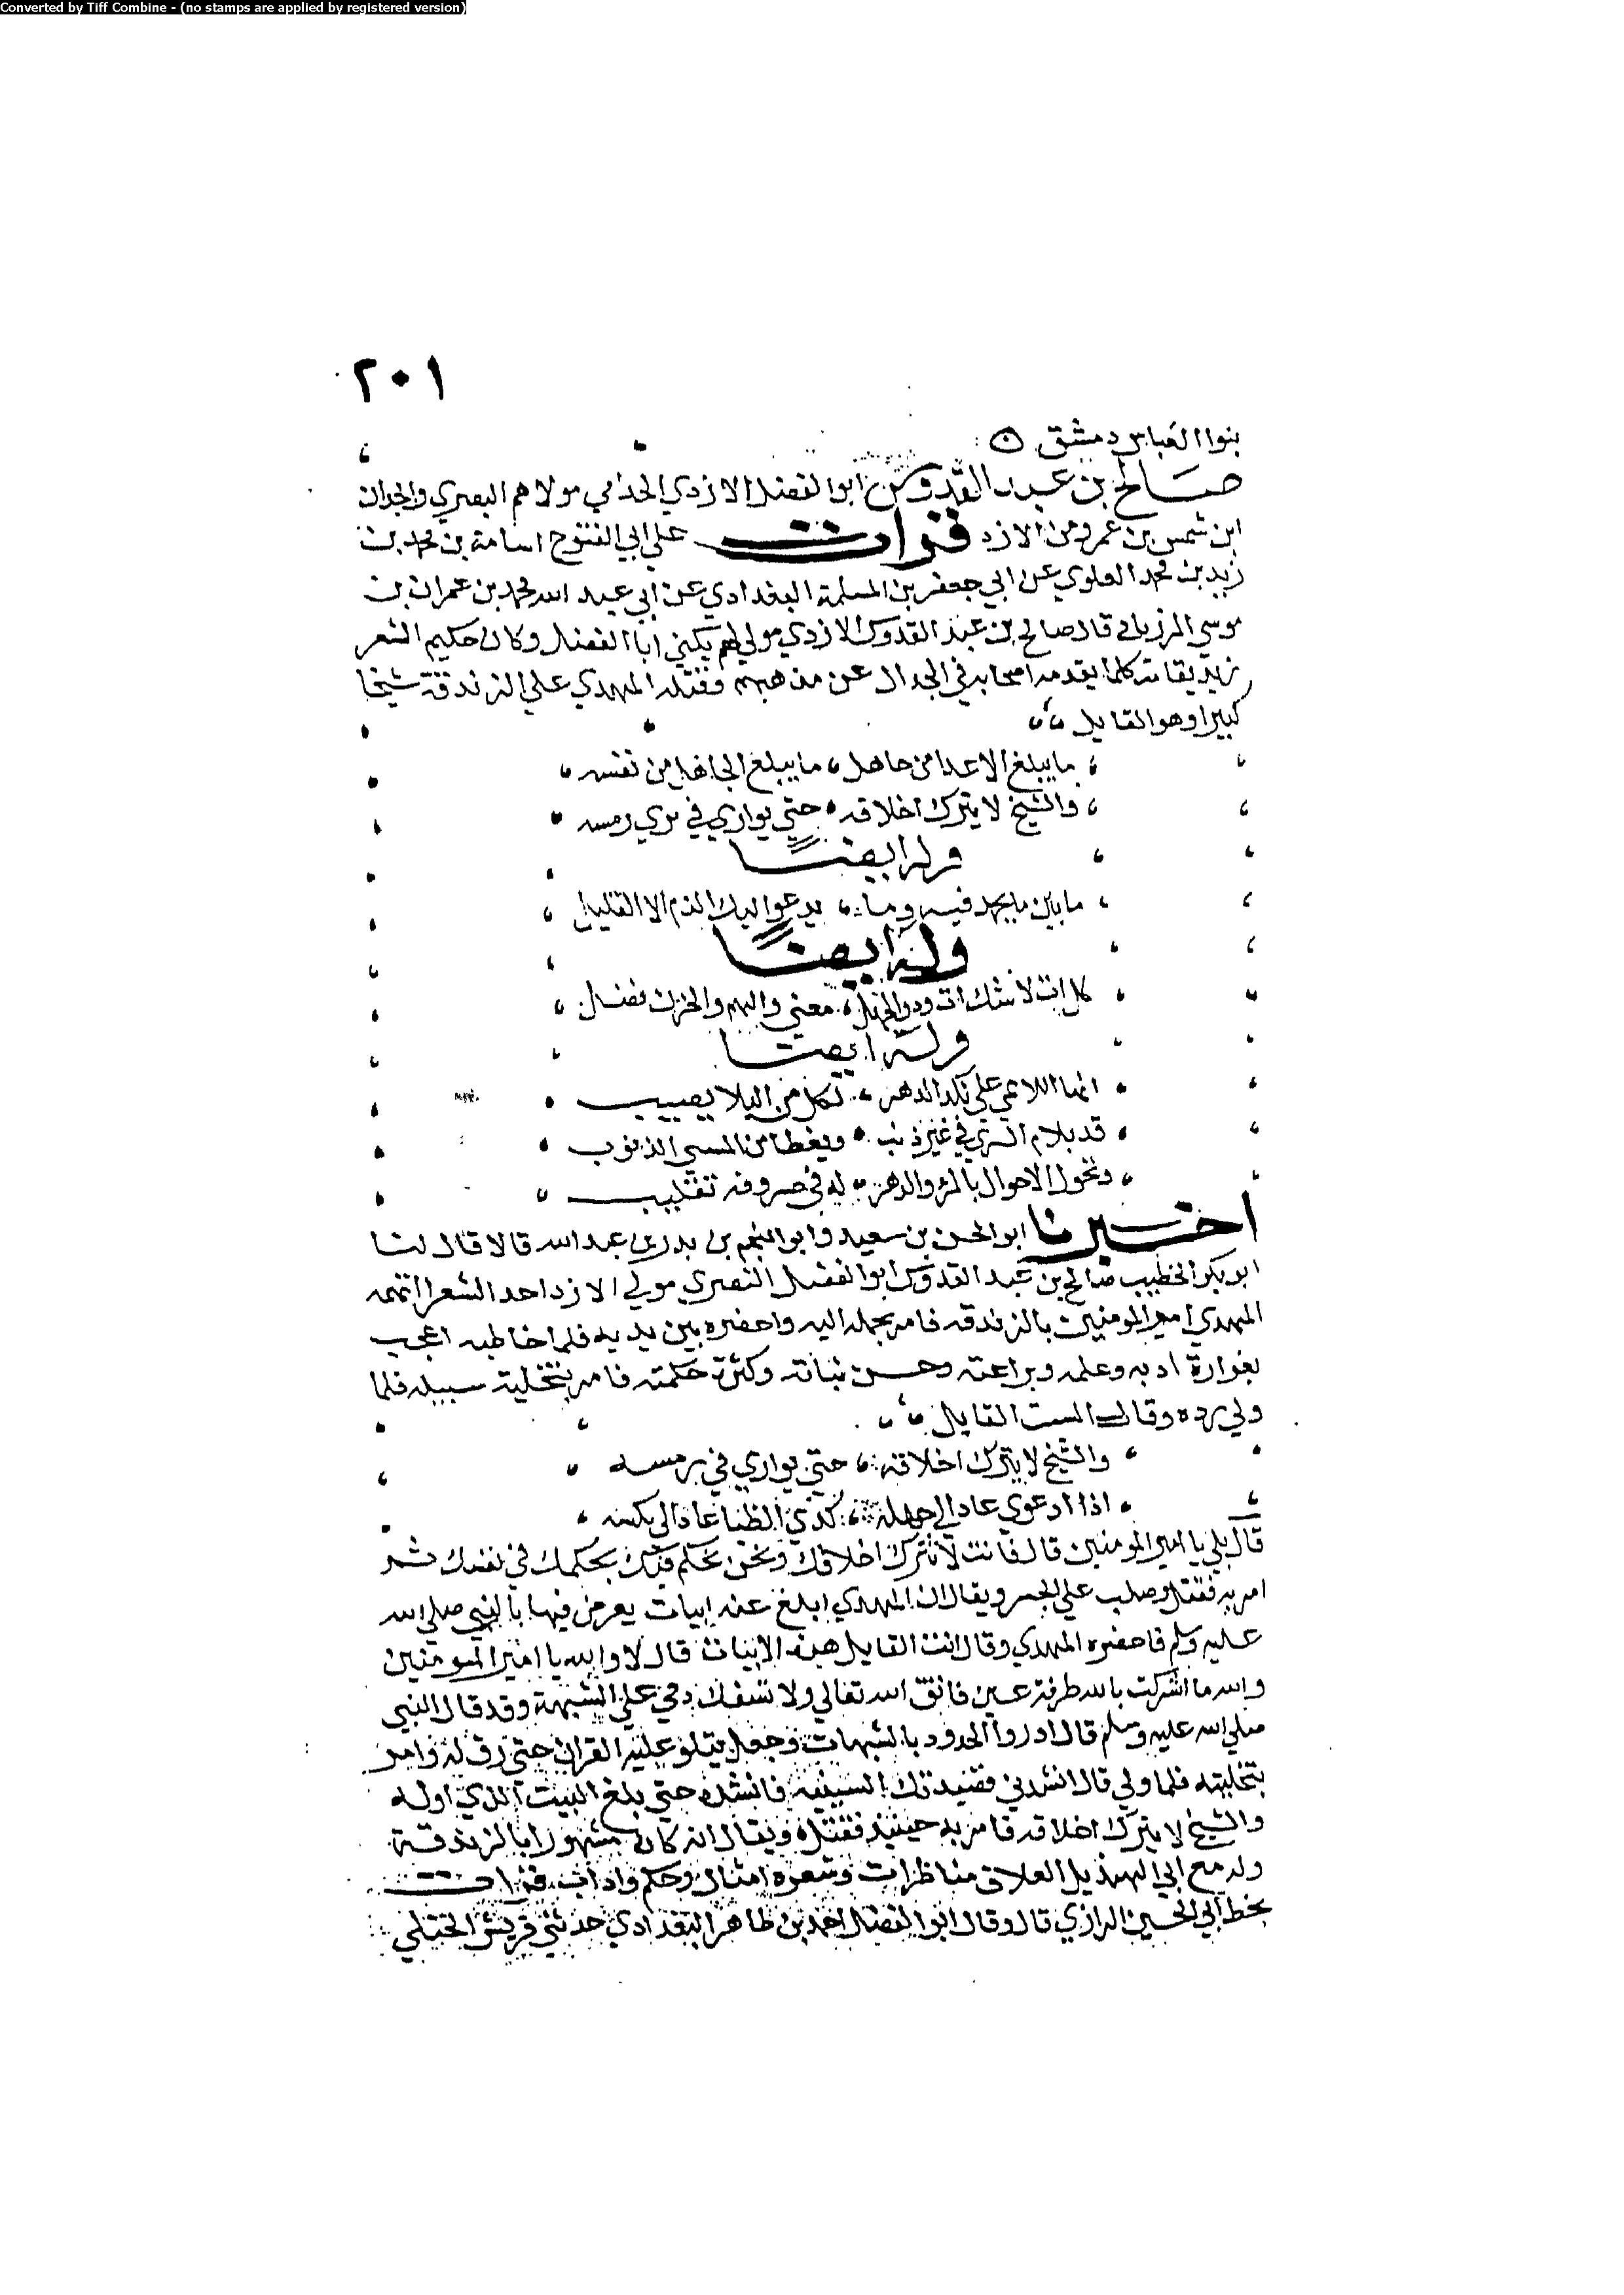 Converted by Tiff Combine - (no stamps are applied by registered version)
٢٠١
بنوا العباس دمشق
صالح بن عبد القدوس ابو الفضل الازدي الحدامي مولاهم البصري والجدان
ابن شمس بن عمرو من الازد قرات علي ابي الفتوح اسامة بن محمد بن
زيد بن محمد العلوي عن ابي جعفر بن المسلمة البغدادي عن ابي عبيد الله محمد بن عمران بن
موسي المرزباني قال صالح بن عبد القدوس الازدي مولي لهم يكني ابا الفضل وكان حكيم الشعر
زنديقا متكلما يقدمه اصحابه في الجدال عن مذهبهم وقتله المهدي علي الزندقة شيخا
كبيرا وهو القايل
ما يبلغ الاعدا من جاهل ما يبلغ الجاهل من نفسه
والشيخ لا يترك اخلاقه حتي يواري في ثري رمسه
وله ايضا
ما بين ما يحمد فيه وما يدعو اليك الذم الا القليل
وله ايضا
كل ات لا شك ات وذو الجهل معني والهم والحزن فضل
وله ايضا
قد يلام البري في غير ذنب ويغطا من المسي الذنوب
وتحول الاحوال بالمرء والدهر له في صروفه تقليب
اخبرنا ابو الحسن بن سعيد وابو النجم بن بدر بن عبد الله قالا قال لنا
ابو بكر الخطيب صالح بن عبد القدوس ابو الفضل البصري مولي الازد احد الشعرا اتهمه
المهدي امير المومنين بالزندقه فامر بحمله اليه واحضره بين يديه فلما خاطبه اعجب
بغزارة ادبه وعلمه وبراعته وحسن ثباته وكثرة حكمته فامر بتخلية سبيله فلما
ولي رده وقال الست القايل
والشيخ لا يترك اخلاقه حتي يواري في رمسه
اذا ارعوي عاد الي جهله كذي الضنا عاد الي نكسه
قال بلي يا امير المومنين قال فانت لا تترك اخلاقك ونحن نحكم فيك بحكمك في نفسك ثم
امر به فقتل وصلب علي الجسر ويقال ان المهدي ابلغ عنه ابيات يعرض فيها بالنبي صلي الله
عليه وسلم فاحضره المهدي وقال انت القايل هذه الابيات قال لا والله يا امير المومنين
والله ما اشركت بالله طرفة عين فاتق الله تعالي ولا تسفك دمي علي الشبهة وقد قال النبي
صلي الله عليه وسلم قال ادروا الحدود بالشبهات وجعل يتلو عليه القران حتي رق له وامر
بتخليته فلما ولي قال انشدني قصيدتك السينيه فانشده حتي بلغ البيت الذي اوله
والشيخ لا يترك اخلاقه فامر به حينيذ فقتله ويقال انه كان مشهورا بالزندقة
وله مع ابي الهذيل العلاف مناظرات وشعره امثال وحكم واداب قرات
بخط ابي الحسين الرازي قال وقال ابو الفضل احمد بن طاهر البغدادي حدثني قريش الختلي